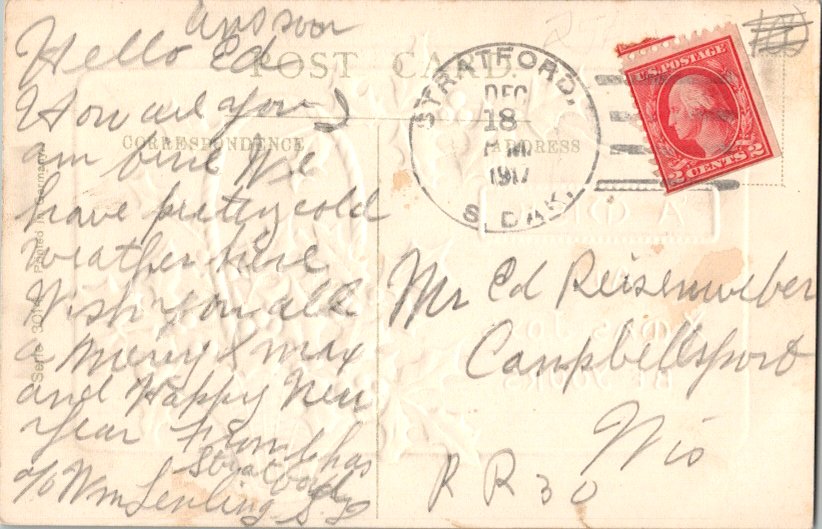 ans soon
Hello Ed
POST CARD.
How are you
CORRESPONDENCE
am fine We
have pretty cold
weather here
Wish you all
a Merry Xmax
and Happy New
Year From Chas
Stratford
c/o Wm S. D
Serie Printed in Germany
STRATFORD,
DEC
18
1917
S. DAK.
ADDRESS
U.S. POSTAGE
2 CENTS 2
Mr Ed Reisenweber
Campbellsport
Wis
R R 30